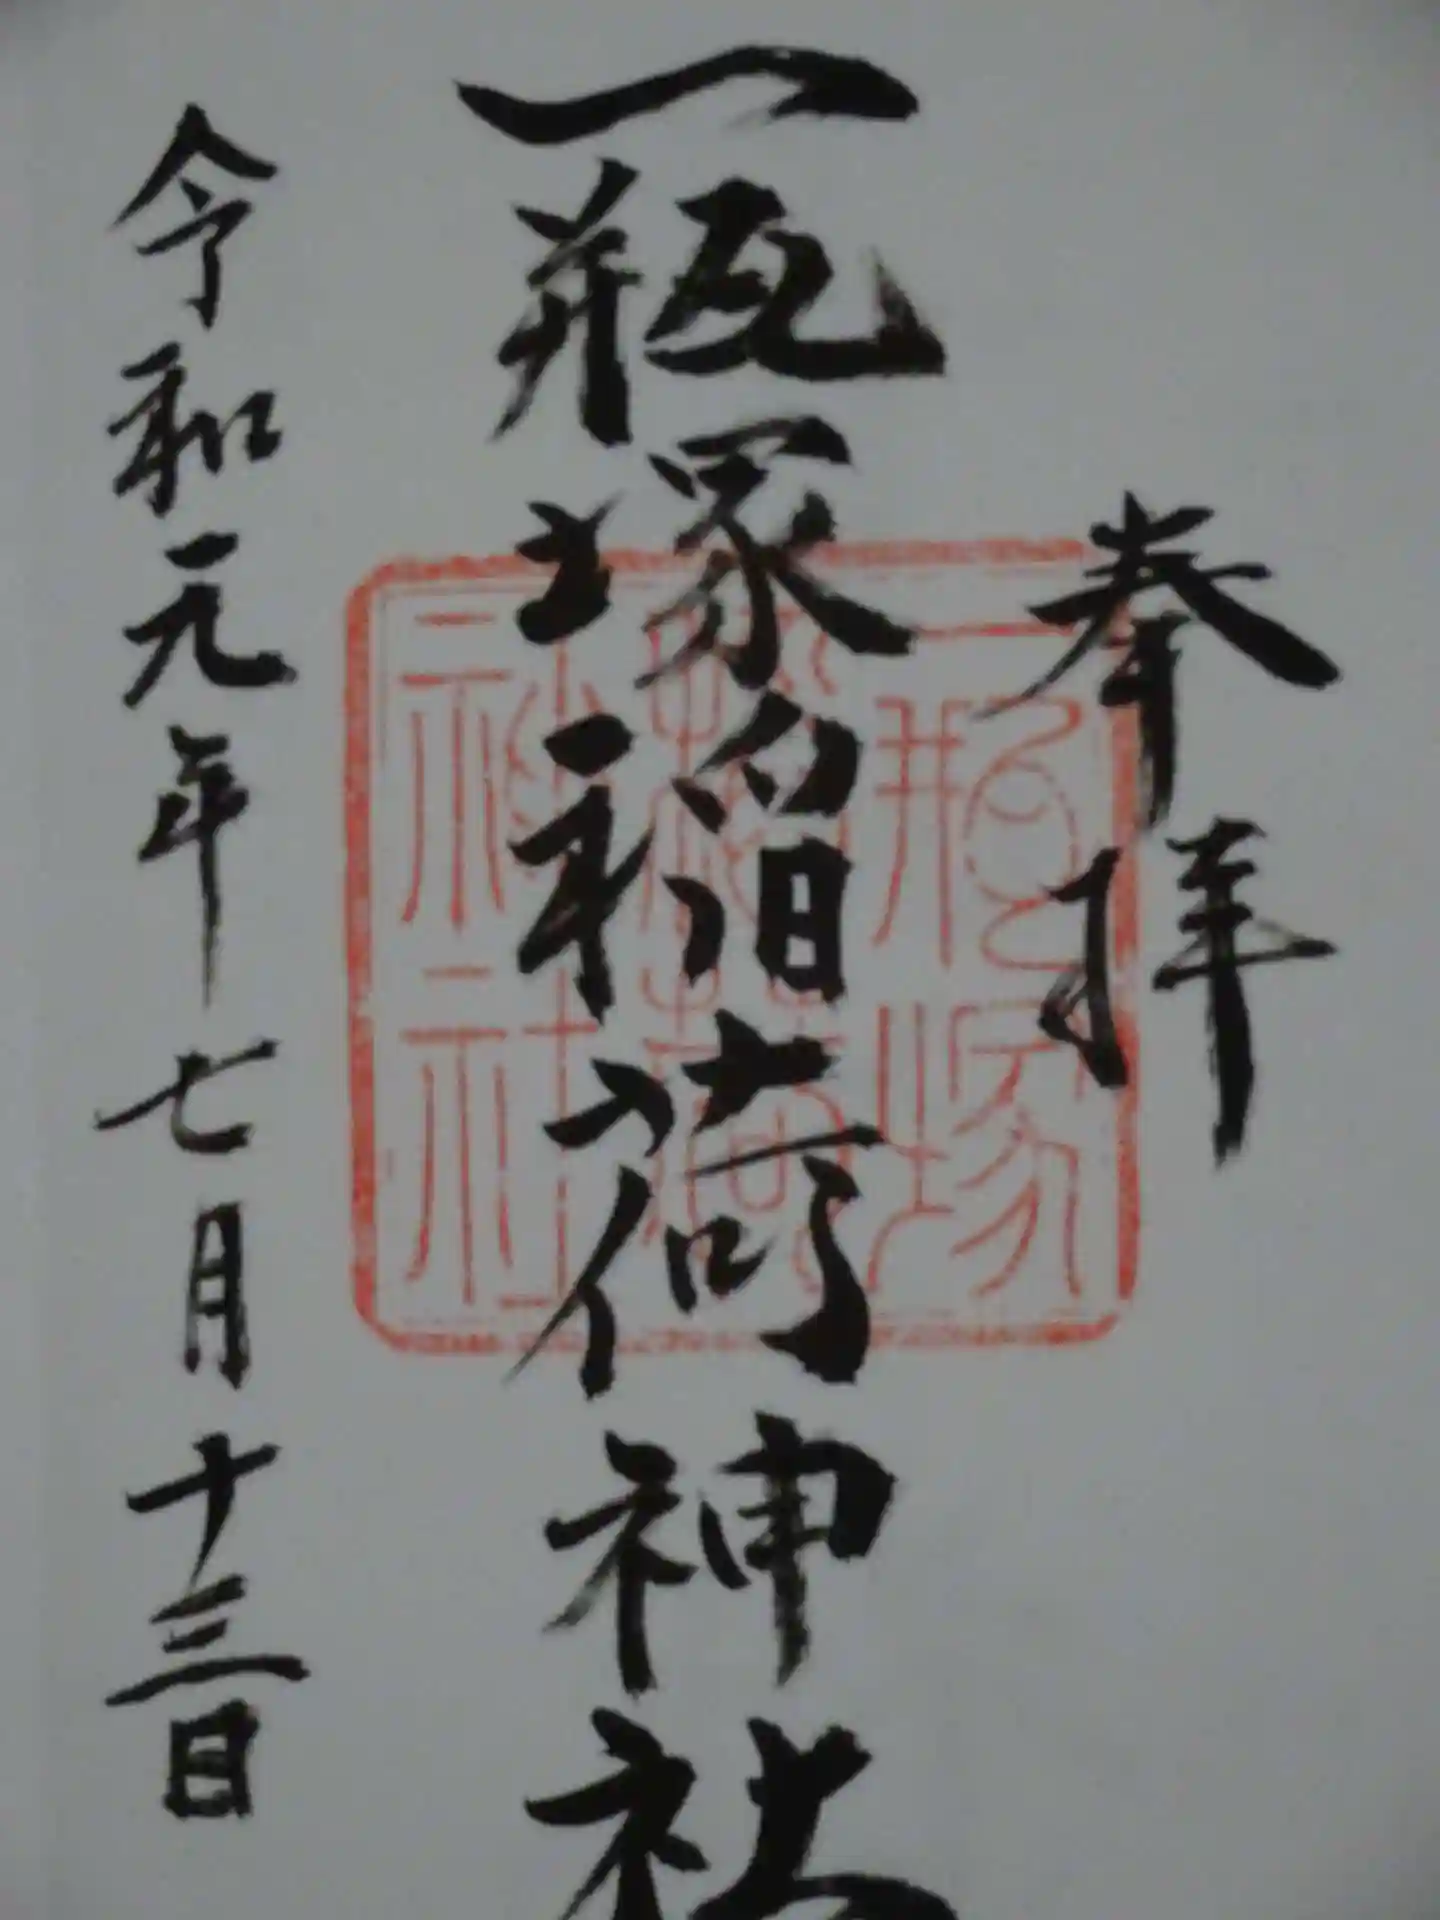 奉拝
一瓶塚稲荷神社
令和元年七月十三日
一瓶塚
稲荷
神社